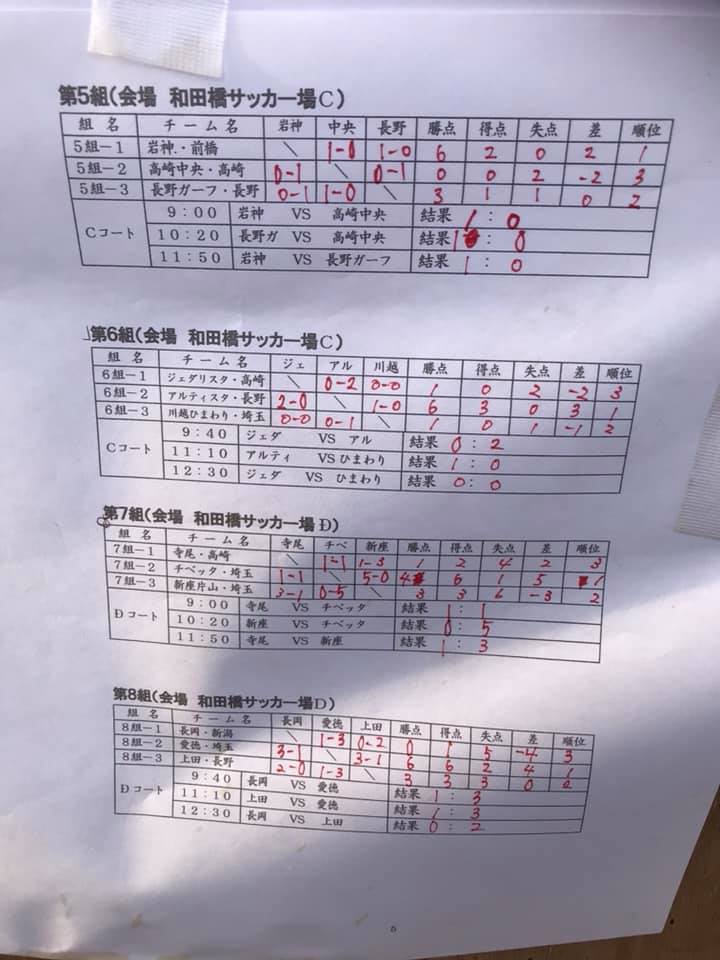 第5組(会場 和田橋サッカー場C)
組 名 チーム名 岩神 中央 長野 勝点 得点 失点 差 順位
5組-1 岩神・前橋 \ 1-0 1-0 6 2 0 2 1
5組-2 高崎中央・高崎 0-1 \ 0-1 0 0 2 -2 3
5組-3 長野ガーフ・長野 0-1 1-0 \ 3 1 1 0 2
Cコート 9:00 岩神 VS 高崎中央 結果 1:0
10:20 長野ガ VS 高崎中央 結果 1:0
11:50 岩神 VS 長野ガーフ 結果 1:0
第6組(会場 和田橋サッカー場C)
組 名 チーム名 ジェ アル 川越 勝点 得点 失点 差 順位
6組-1 ジェダリスタ・高崎 \ 0-2 0-0 1 0 2 -2 3
6組-2 アルティスタ・長野 2-0 \ 1-0 6 3 0 3 1
6組-3 川越ひまわり・埼玉 0-0 0-1 \ 1 0 1 -1 2
Cコート 9:40 ジェダ VS アル 結果 0:2
11:10 アルティ VSひまわり 結果 1:0
12:30 ジェダ VS ひまわり 結果 0:0
第7組(会場 和田橋サッカー場D)
組 名 チーム名 寺尾 チベ 新座 勝点 得点 失点 差 順位
7組-1 寺尾・高崎 \ 1-1 1-3 1 2 4 2 3
7組-2 チベッタ・埼玉 1-1 \ 5-0 4 6 1 5 1
7組-3 新座片山・埼玉 3-1 0-5 \ 3 3 6 -3 2
Dコート 9:00 寺尾 VS チベッタ 結果 1:1
10:20 新座 VS チベッタ 結果 0:5
11:50 寺尾 VS 新座 結果 1:3
第8組(会場 和田橋サッカー場D)
組 名 チーム名 長岡 愛徳 上田 勝点 得点 失点 差 順位
8組-1 長岡・新潟 \ 1-3 0-2 0 1 5 -4 3
8組-2 愛徳・埼玉 3-1 \ 3-1 6 6 2 4 1
8組-3 上田・長野 2-0 1-3 \ 3 3 3 0 2
Dコート 9:40 長岡 VS 愛徳 結果 1:3
11:10 上田 VS 愛徳 結果 1:3
12:30 長岡 VS 上田 結果 0:2